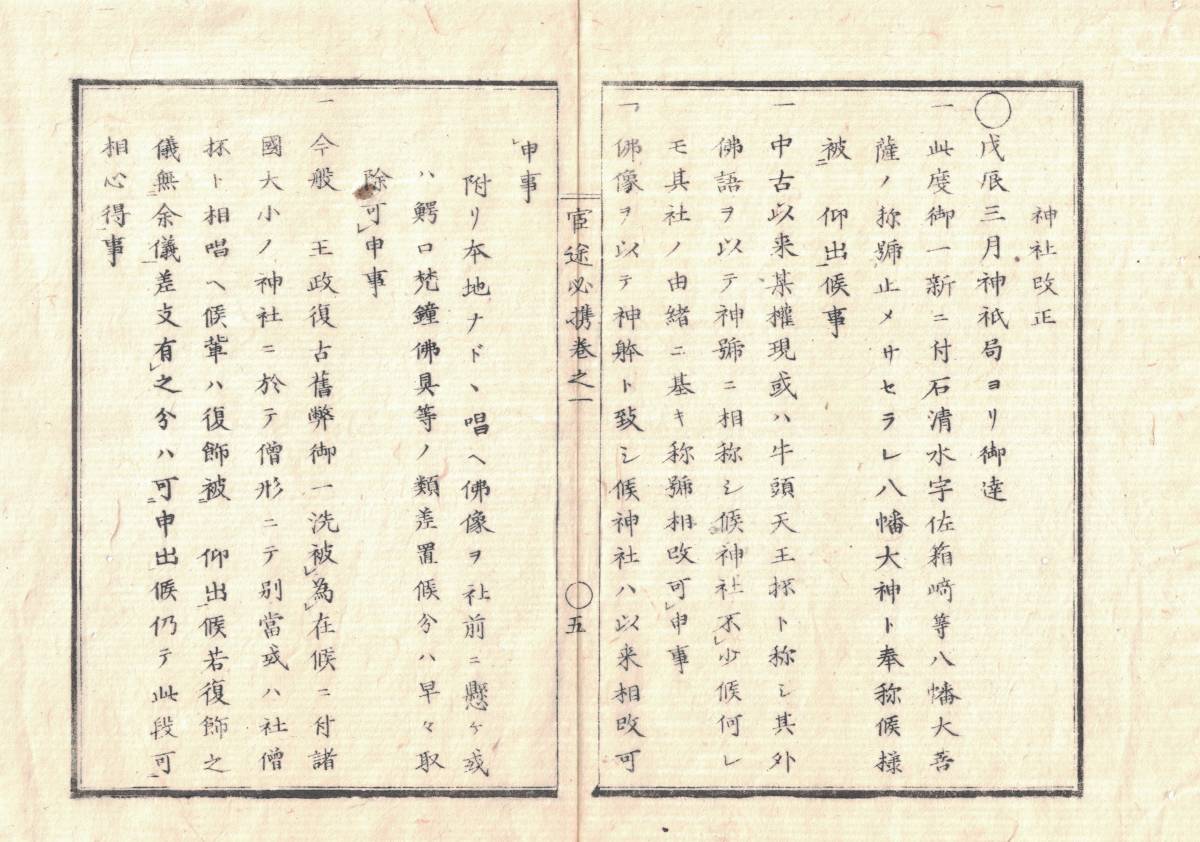 神社改正
○戊辰三月神祇局ヨリ御達
一此度御一新ニ付石清水宇佐筥﨑等八幡大菩
薩ノ称號止メサセラレ八幡大神ト奉称候様
被仰出候事
一中古以来某權現或ハ牛頭天王抔ト称シ其外
佛語ヲ以テ神號ニ相称シ候神社不少候何レ
モ其社ノ由緒ニ基キ称號相改可申事
一佛像ヲ以テ神躰ト致シ候神社ハ以来相改可
官途必携巻之一 ○五
申事
附リ本地ナドヽ唱ヘ佛像ヲ社前ニ懸ケ或
ハ鰐口梵鐘佛具等ノ類差置候分ハ早々取
除可申事
一今般 王政復古舊弊御一洗被為在候ニ付諸
國大小ノ神社ニ於テ僧形ニテ別當或ハ社僧
抔ト相唱ヘ候輩ハ復飾被 仰出候若復飾之
儀無余儀差支有之分ハ可申出候仍テ此段可
相心得事